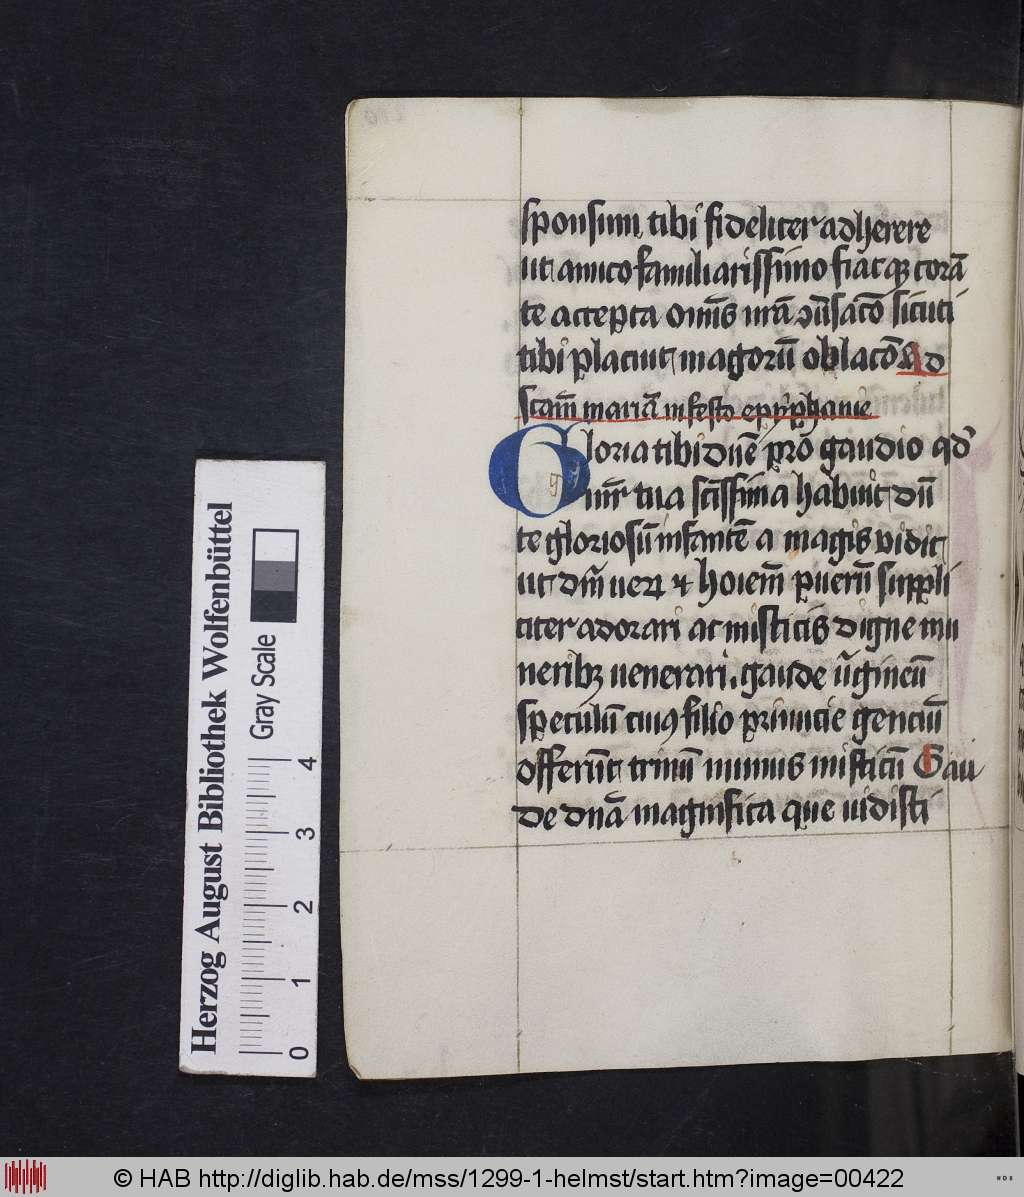 sponsum tibi fideliter adherere
ut amico familiarissimo fiatqꝫ corā
te accepta oīms nr̄a ꝯūsacō sicuti
tibi placuit magorū oblacō Ad
scām mariā in festo epyphanie
Gloria tibi dn̄e pro gaudio qd̓
mr̄ tua scīssima habuit dū
te gloriosū infantē a magis vidit
ut dm̄ uerꝝ ⁊ hoiem̄ puerū suppli
citer adorari ac misticis digne mu
neribꝫ uenerari. gaude v̄gineū
speculū cuiꝰ filio primicie genciū
offerūt trinū munus misticū Gau
de dn̄a magnifica que uidisti
Herzog August Bibliothek Wolfenbüttel
Gray Scale
0 1 2 3 4
© HAB http://diglib.hab.de/mss/1299-1-helmst/start.htm?image=00422